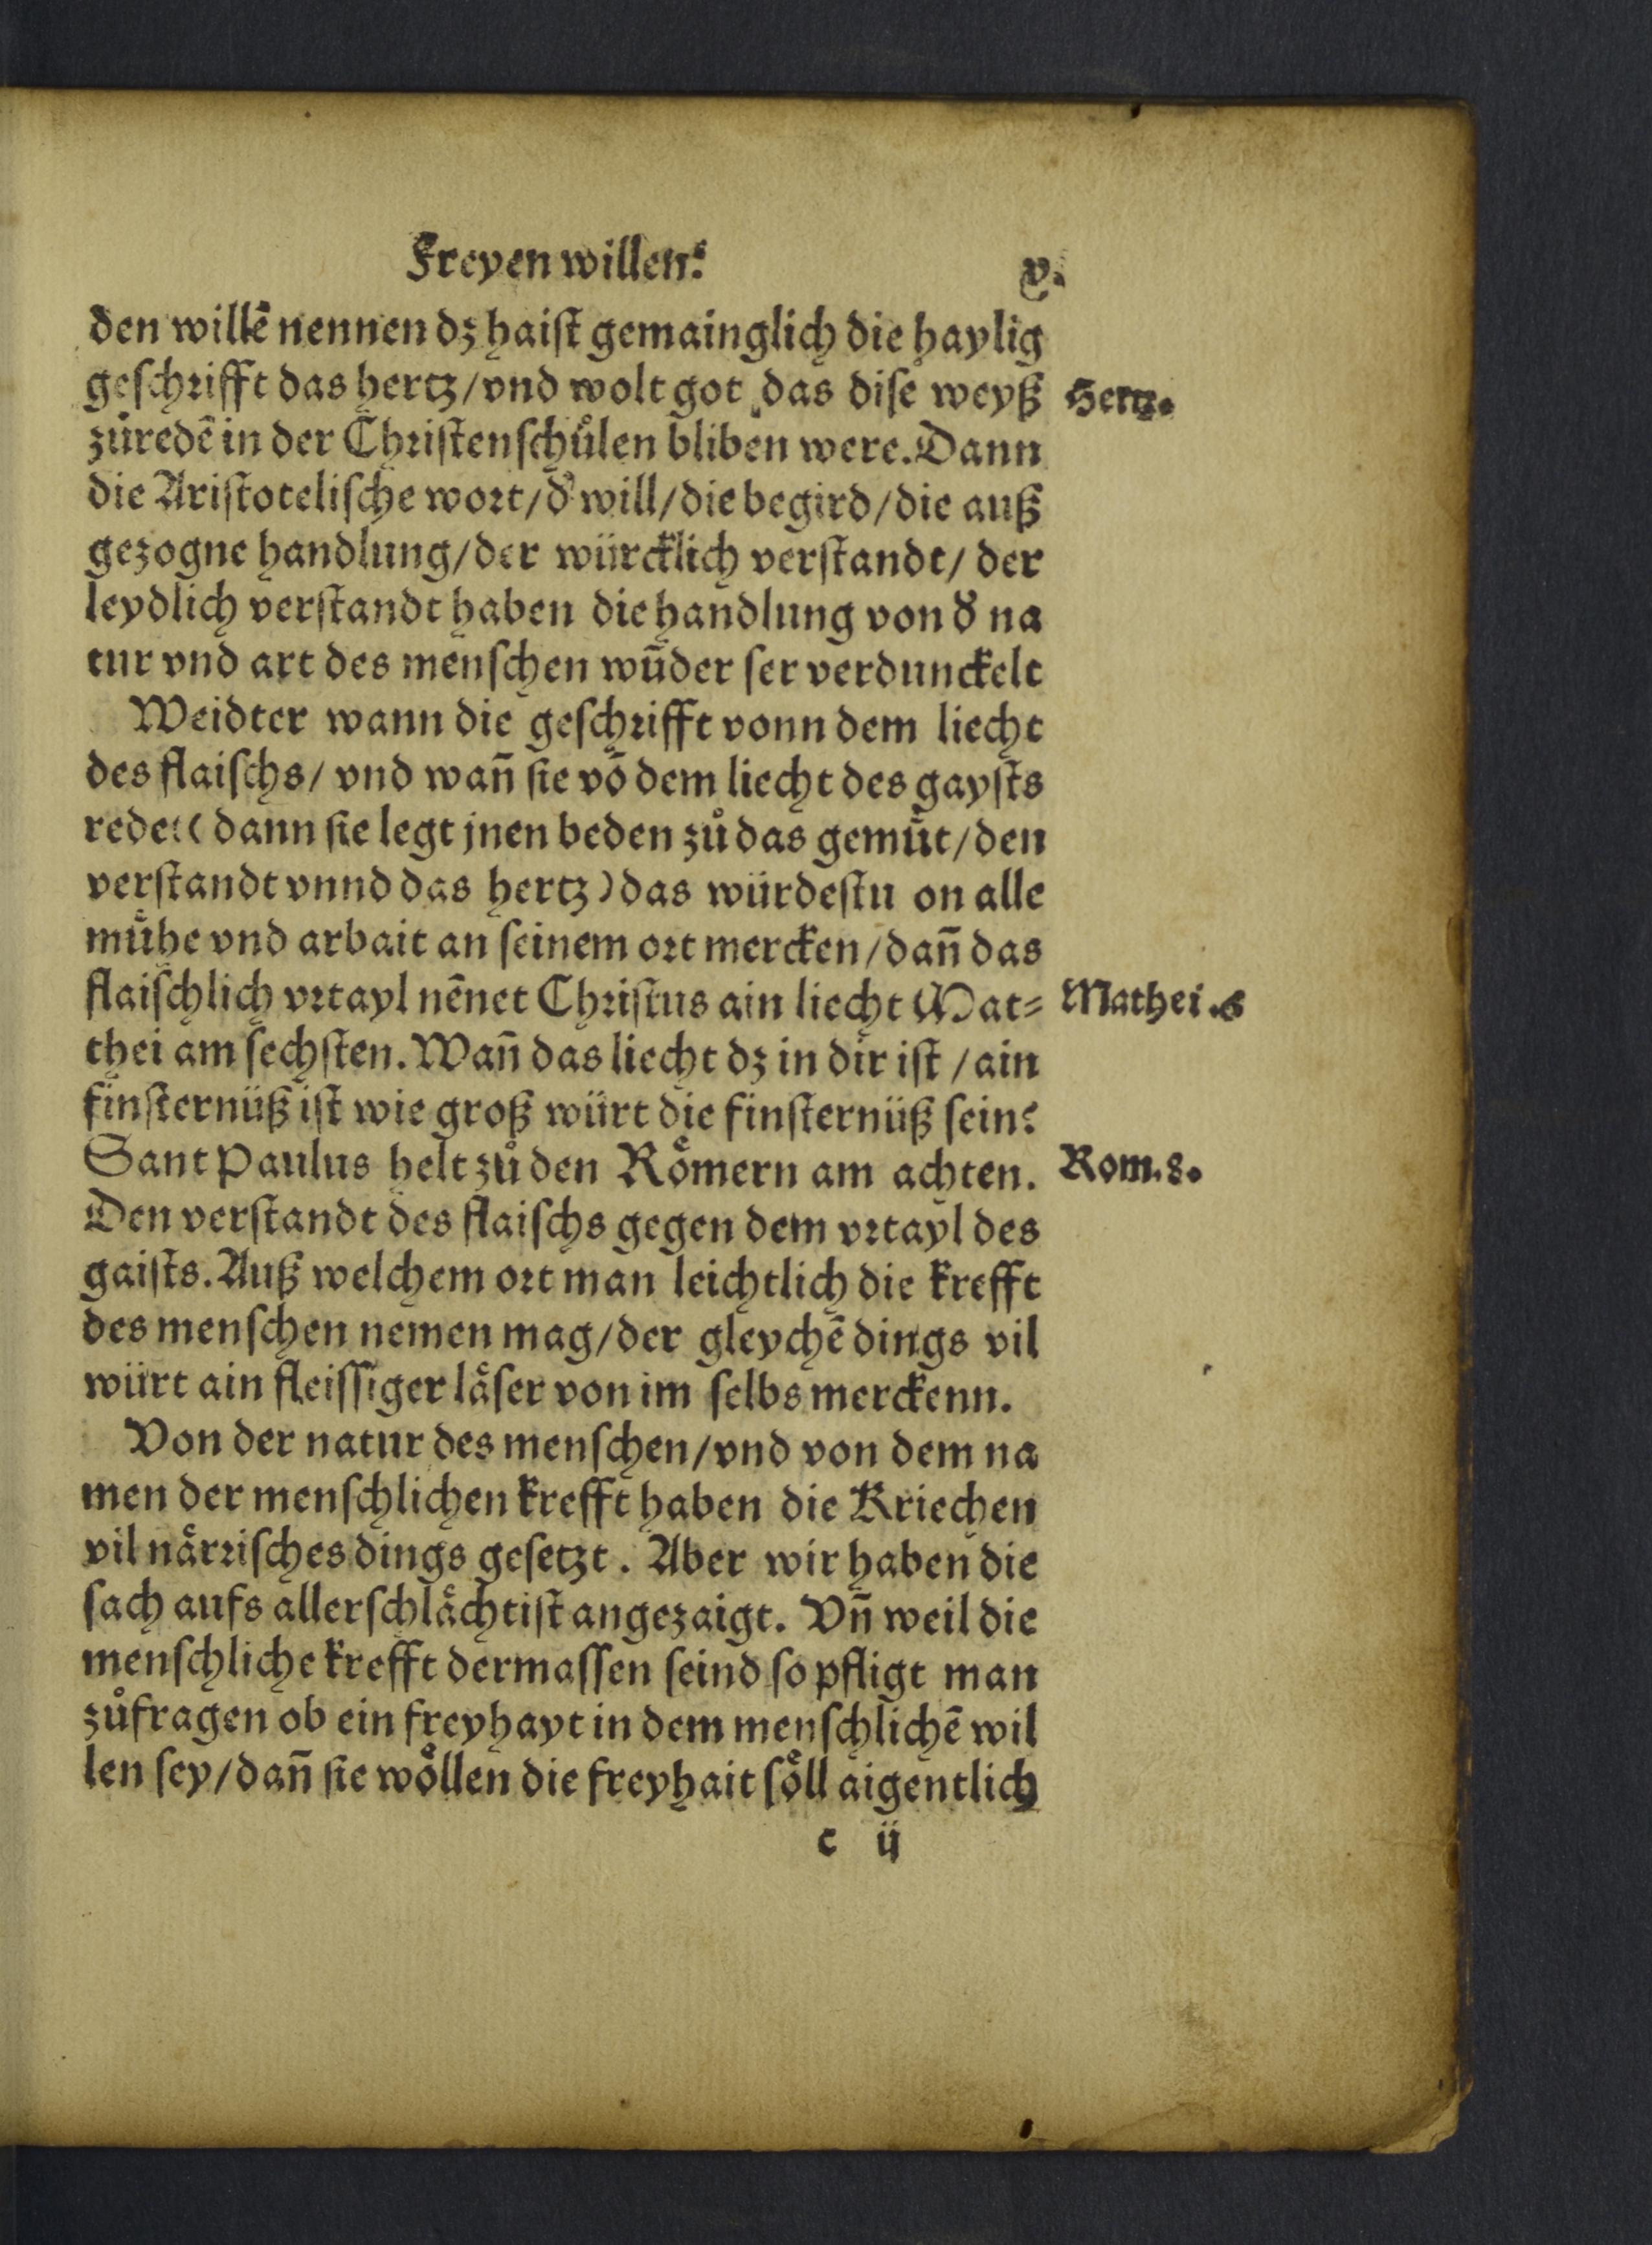 Freyen willen.
v.
den willē nennen dz haiſt gemainglich die haylig
geſchrifft das hertz/vnd wolt got das diſe weyß
Hertz.
zůredē in der Chriſtenſchůlen bliben were. Dann
die Ariſtoteliſche wort/d' will/die begird/die auß
gezogne handlung/der würcklich verſtandt/ der
leydlich verſtandt haben die handlung von d' na
tur vnd art des menſchen wūder ſer verdunckelt
Weidter wann die geſchrifft vonn dem liecht
des flaiſchs/ vnd wañ ſie võ dem liecht des gayſts
redet( dann ſie legt jnen beden zů das gemuͤt/den
verſtandt vnnd das hertz) das würdeſtu on alle
muͤhe vnd arbait an ſeinem ort mercken/dañ das
flaiſchlich vrtayl nēnet Chriſtus ain liecht Mat⸗
Mathei .6
thei am ſechſten. Wañ das liecht dz in dir iſt /ain
finſternüß iſt wie groß würt die finſternüß ſein?
Sant Paulus helt zů den Roͤmern am achten.
Rom. 8.
Den verſtandt des flaiſchs gegen dem vrtayl des
gaiſts. Auß welchem ort man leichtlich die krefft
des menſchen nemen mag/der gleychē dings vil
würt ain fleiſſiger laͤſer von im ſelbs merckenn.
Von der natur des menſchen/vnd von dem na
men der menſchlichen krefft haben die Kriechen
vil naͤrriſches dings geſetzt. Aber wir haben die
ſach aufs allerſchlaͤchtiſt angezaigt. Vñ weil die
menſchliche krefft dermaſſen ſeind ſo pfligt man
zůfragen ob ein freyhayt in dem menſchlichē wil
len ſey/dañ ſie woͤllen die freyhait ſoͤll aigentlich
c ij